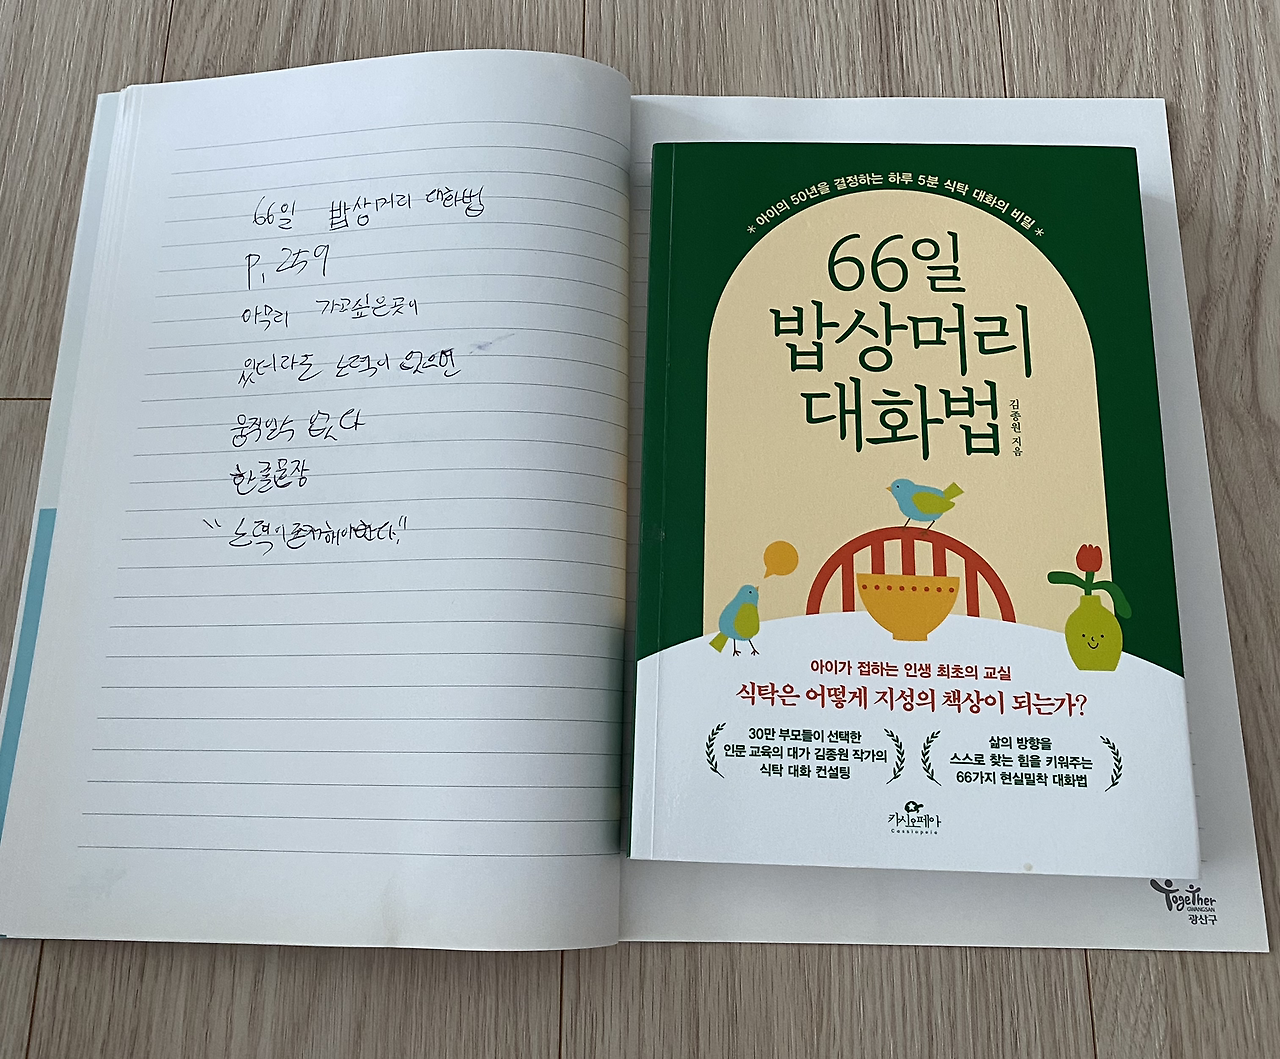 66일 밥상머리 대화법
P. 259
아무리 가고싶은곳이
있더라도 노력이 없으면
움직일수 없다
한글문장
"노력이존재해야한다."
* 아이의 50년을 결정하는 하루 5분 식탁 대화의 비밀 *
66일
밥상머리
대화법
김종원 지음
아이가 접하는 인생 최초의 교실
식탁은 어떻게 지성의 책상이 되는가?
30만 부모들이 선택한
인문 교육의 대가 김종원 작가의
식탁 대화 컨설팅
삶의 방향을
스스로 찾는 힘을 키워주는
66가지 현실밀착 대화법
카시오페아
Cassiopeia
Together
GWANGSAN
광산구